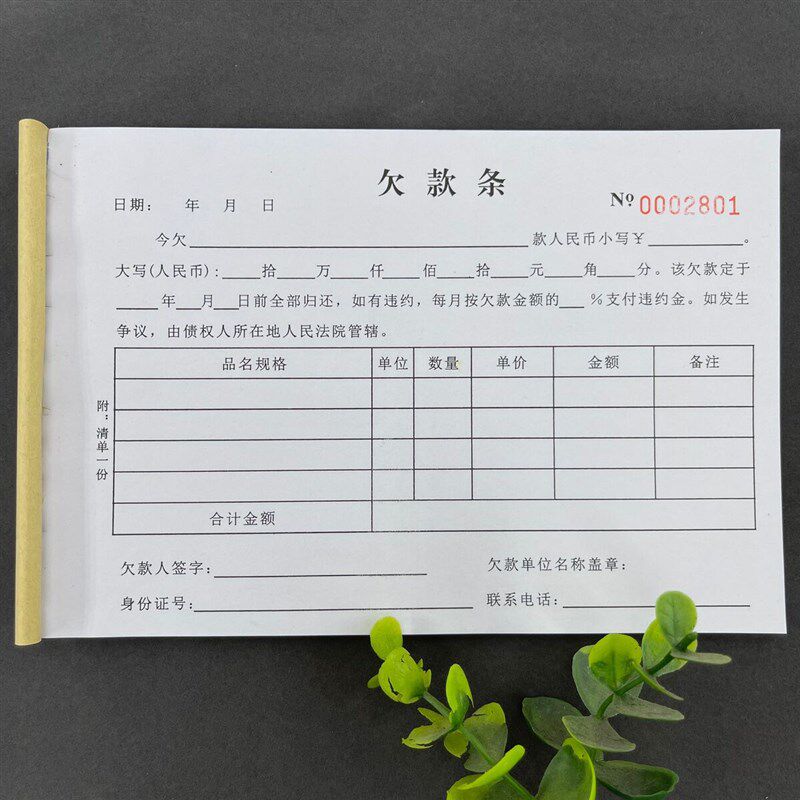 欠款条
日期： 年 月 日 Nº 0002801
今欠____________________款人民币小写￥__________。
大写(人民币):____拾____万____仟____佰____拾____元____角____分。该欠款定于
_____年____月____日前全部归还，如有违约，每月按欠款金额的___ %支付违约金。如发生
争议，由债权人所在地人民法院管辖。
品名规格 单位 数量 单价 金额 备注
附：清单一份
合计金额
欠款人签字:____________________ 欠款单位名称盖章:
身份证号:____________________ 联系电话:____________________